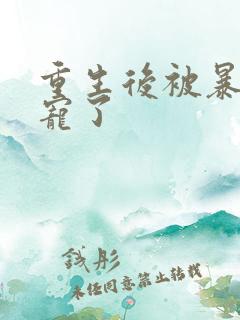 重生後被暴
寵了
錢彤
未经同意禁止转载